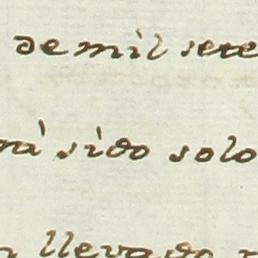 de mil sete
sido solo
llevado